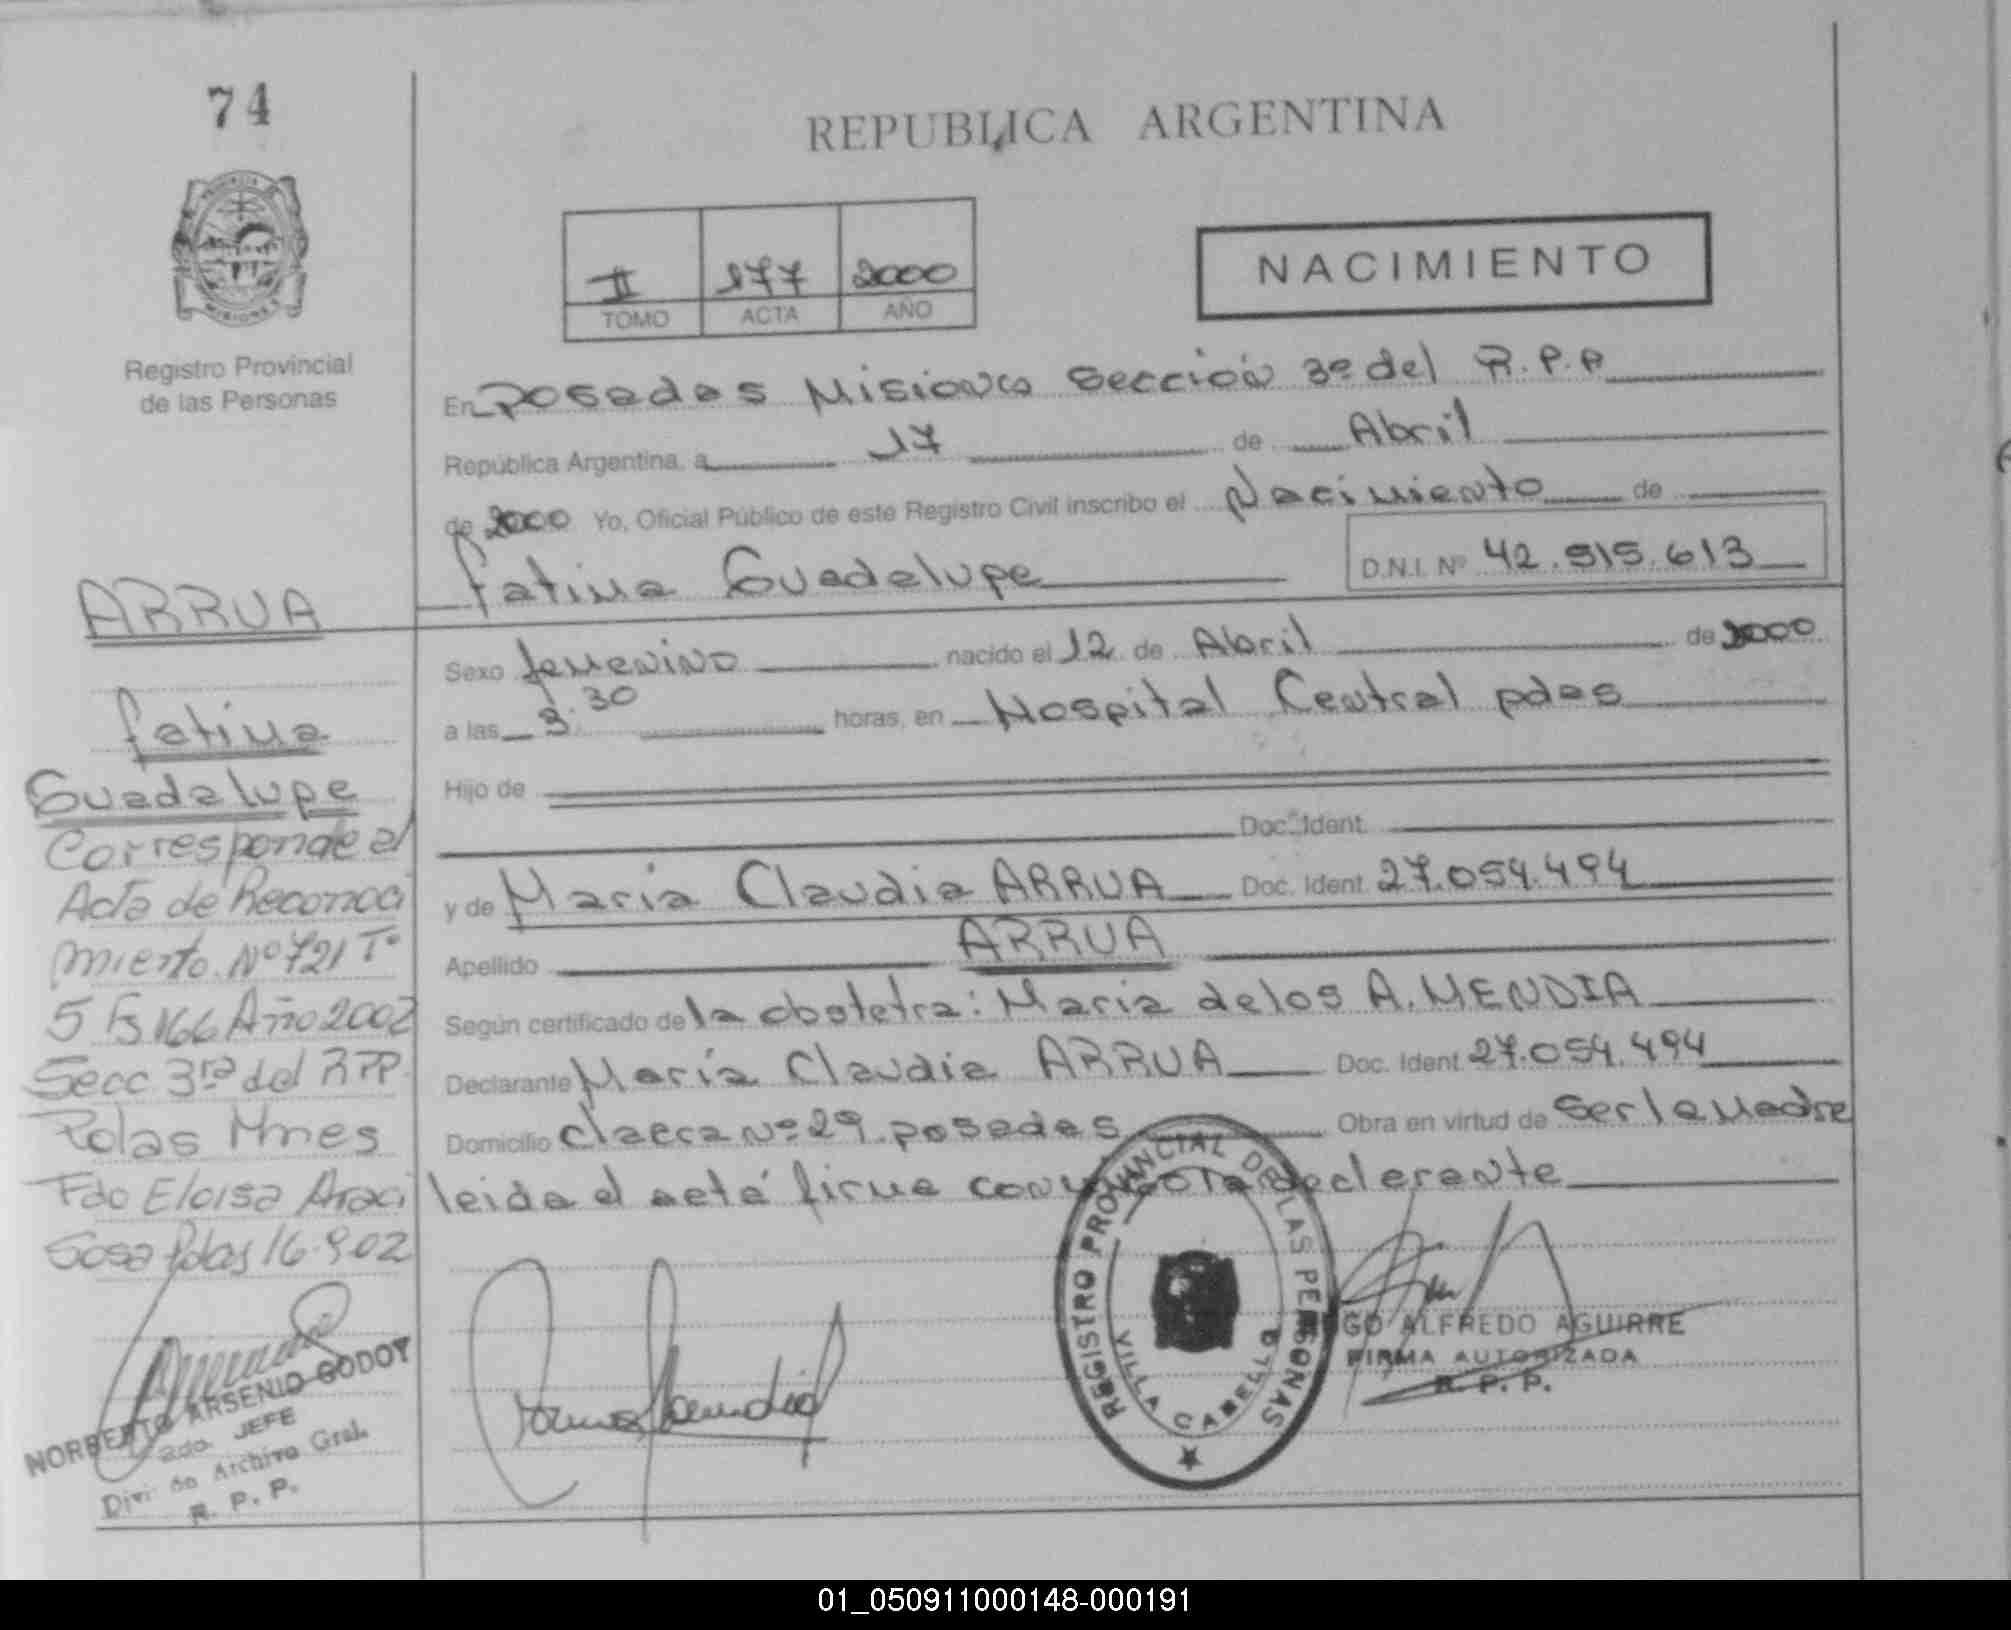 74
REPUBLICA ARGENTINA
II 177 2000
TOMO ACTA AÑO
NACIMIENTO
Registro Provincial
de las Personas
En Posadas Misiones Sección 3ª del R.P.P
República Argentina, a 17 de Abril
de 2000 Yo, Oficial Público de este Registro Civil inscribo el Nacimiento de
Fatima Guadalupe D.N.I. Nº 42.515.613
Sexo femenino nacido el 12 de Abril de 2000
a las 3.30 horas, en Hospital Central pdas
Hijo de
Doc. Ident.
y de María Claudia ARRUA Doc. Ident. 27.054.494
Apellido ARRUA
Según certificado de la obstetra: Maria de los A. MENDIA
Declarante María Claudia ARRUA Doc. Ident. 27.054.494
Domicilio Nº 29 posadas Obra en virtud de Ser la Madre
leida el acta firma conmigo la declarante
ARRUA
Fatima
Guadalupe
Corresponde al
Acta de Reconoci
miento Nº 721 Tº
5 Fº 166 Año 2002
Secc 3ra del RPP.
Pdas Mnes
Fdo Eloisa Araci
Sosa Pdas 16.9.02
NORBERTO ARSENIO GODOY
2do. JEFE
Div. de Archivo Gral.
R. P. P.
REGISTRO PROVINCIAL DE LAS PERSONAS
VILLA CABELLO
GO ALFREDO AGUIRRE
FIRMA AUTORIZADA
R. P. P.
01_050911000148-000191